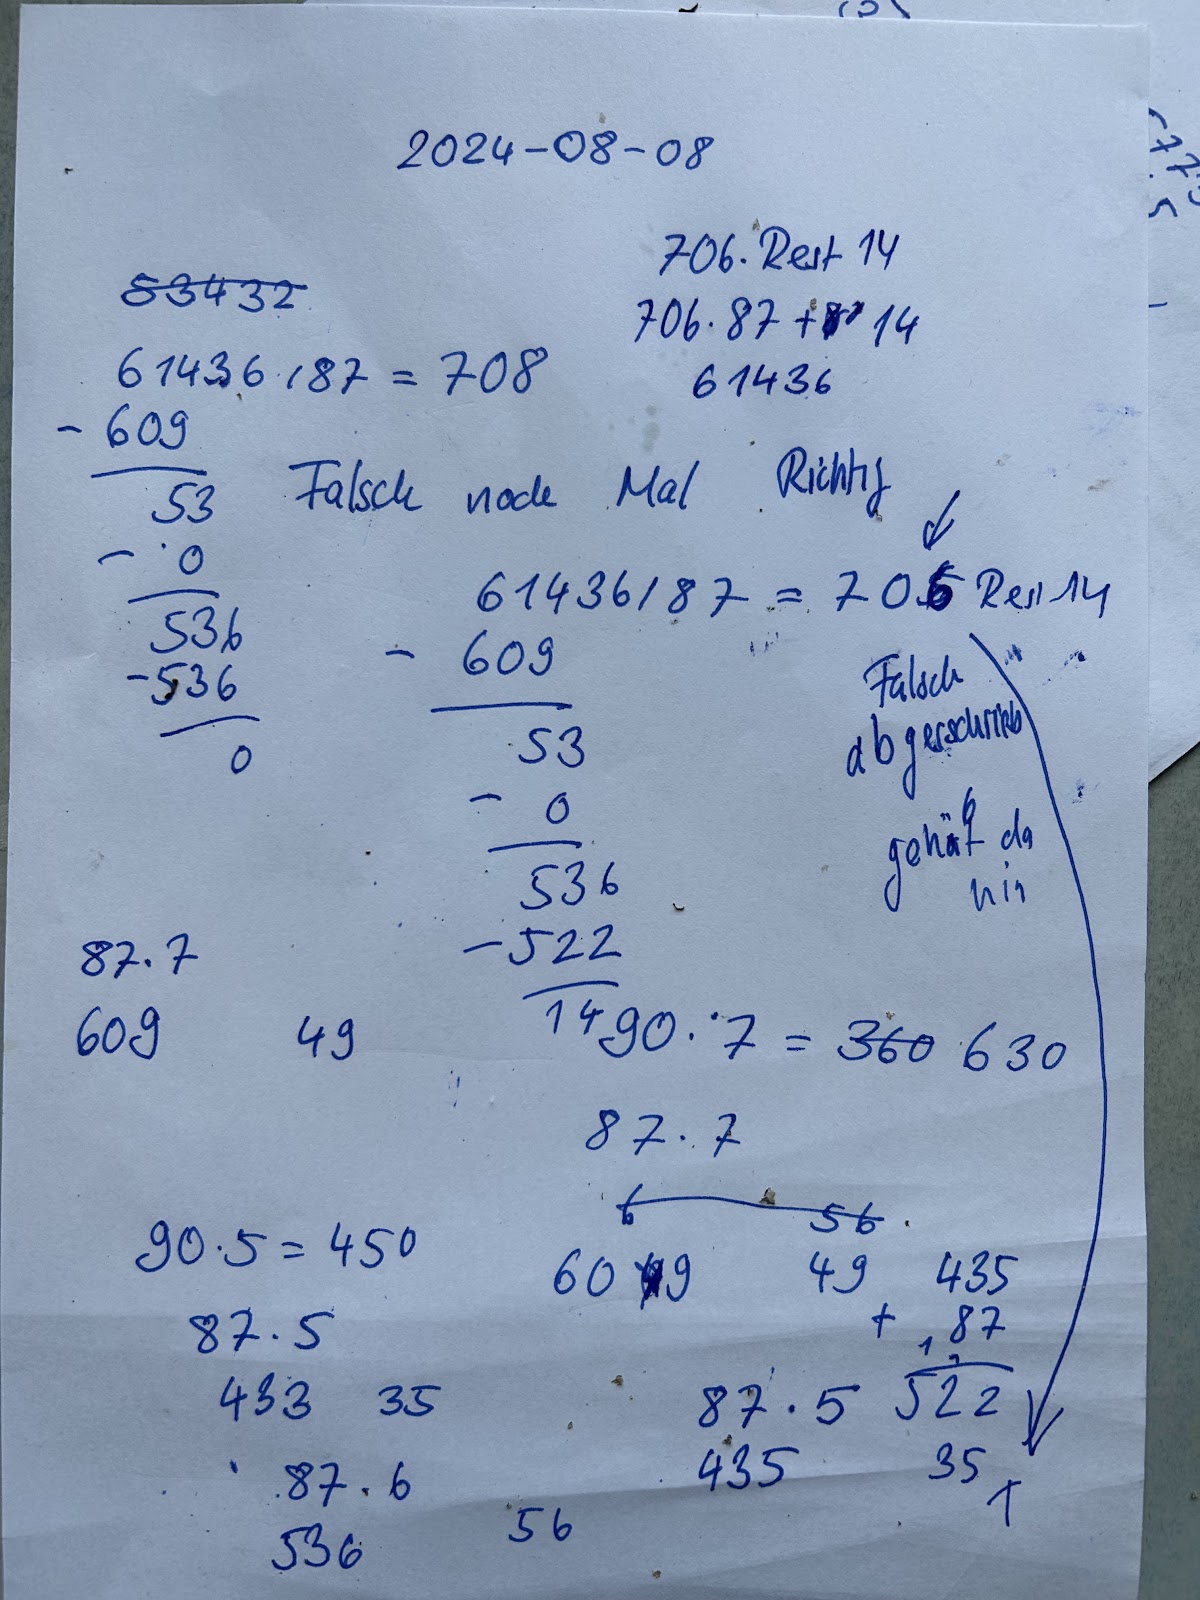 2024-08-08
706. Rest 14
53432
706.87 + 14
61436/87 = 708
61436
- 609
53
Falsch noch Mal Richtig
- 0
61436/87 = 706 Rest 14
536
- 609
-536
Falsch
0
53
abgerschrieb
- 0
6
gehät da
536
hin
87.7
-522
609 49
14
90.7 = 360 630
87.7
6 56
90.5 = 450
60 49 49 435
87.5
+ 87
1 1
433 35
87.5 522
435 35
87.6
1
536 56